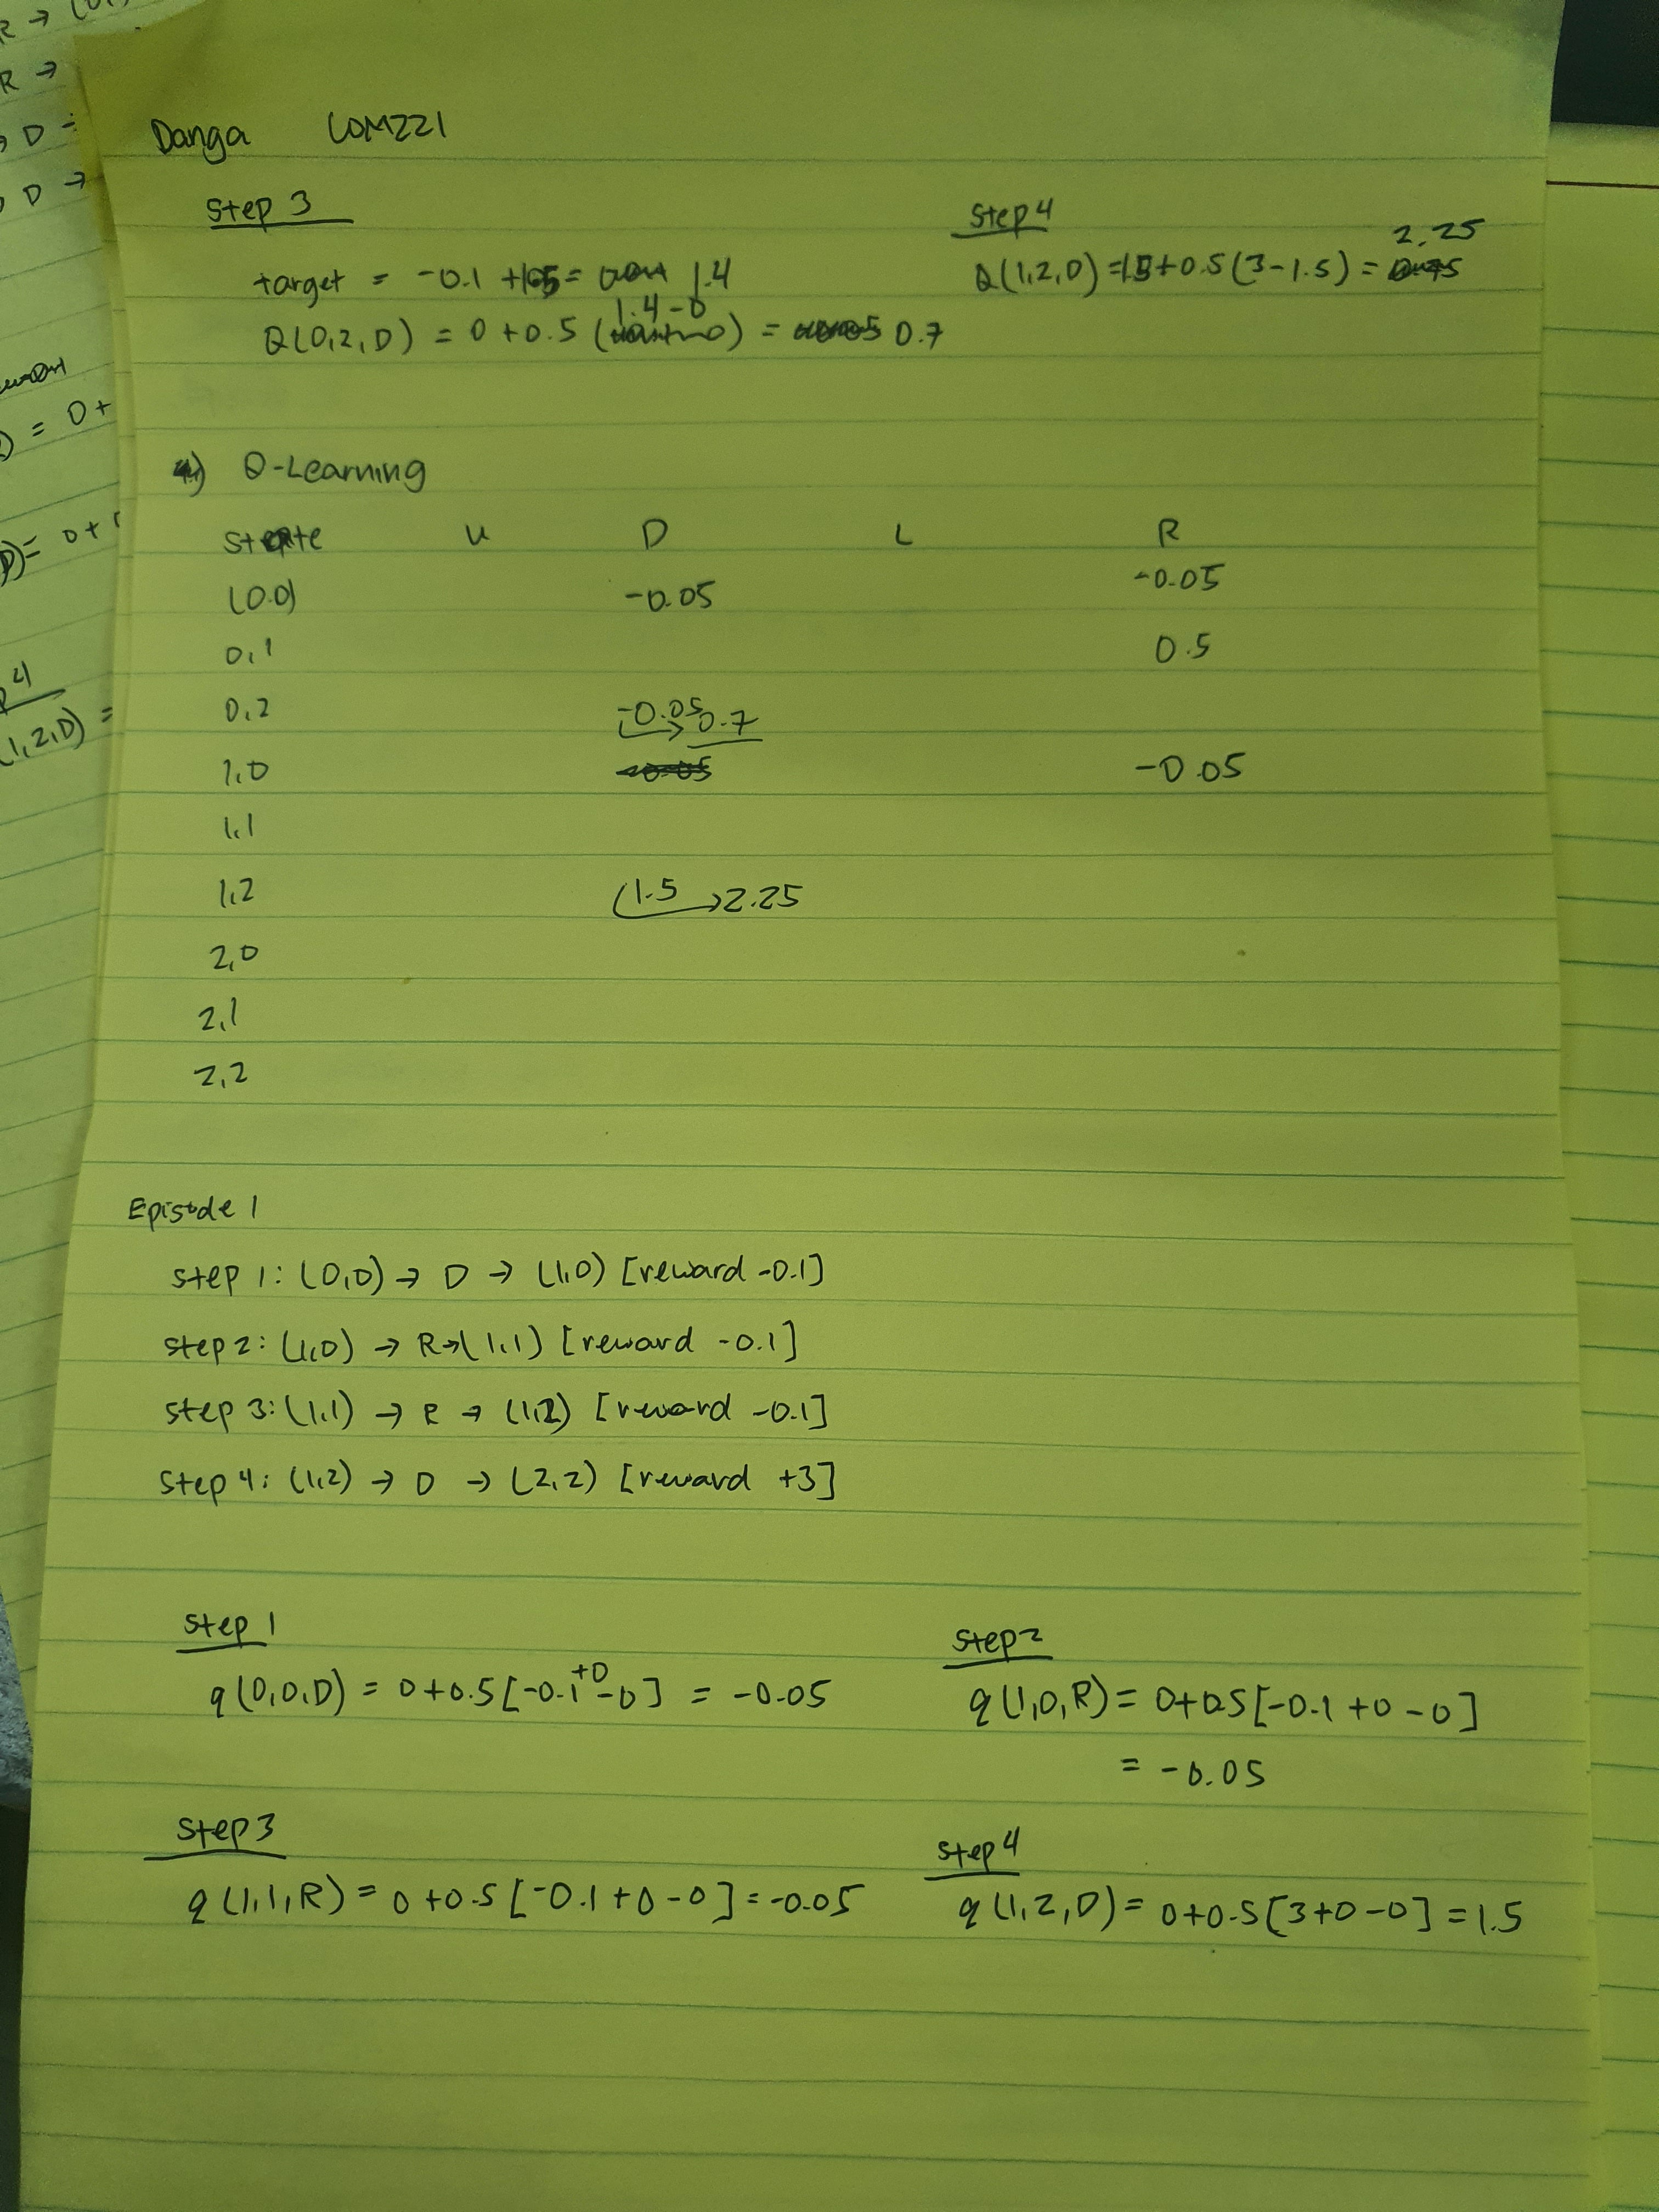 R → (0,
R →
D =
D →
= 0 +
D) = 0 +
4
1,2,D) =
Danga COM221
Step 3
target = -0.1 + 1.5 = 1.4
1.4-0
Q(0,2,D) = 0 + 0.5 ( ) = 0.7
Step 4
2.25
Q(1,2,D) = 1.5 + 0.5 (3-1.5) =
4) Q-Learning
State U D L R
(0.0) -0.05 -0.05
0,1 0.5
0,2 -0.05 → 0.7
1,0 -0.05 -0.05
1,1
1,2 1.5 → 2.25
2,0
2,1
2,2
Episode 1
step 1: (0,0) → D → (1,0) [reward -0.1]
step 2: (1,0) → R → (1,1) [reward -0.1]
step 3: (1,1) → R → (1,2) [reward -0.1]
step 4: (1,2) → D → (2,2) [reward +3]
Step 1
q(0,0,D) = 0+0.5[-0.1+0-0] = -0.05
Step 2
q(1,0,R) = 0+0.5[-0.1+0-0]
= -0.05
Step 3
q(1,1,R) = 0+0.5[-0.1+0-0] = -0.05
Step 4
q(1,2,D) = 0+0.5[3+0-0] = 1.5